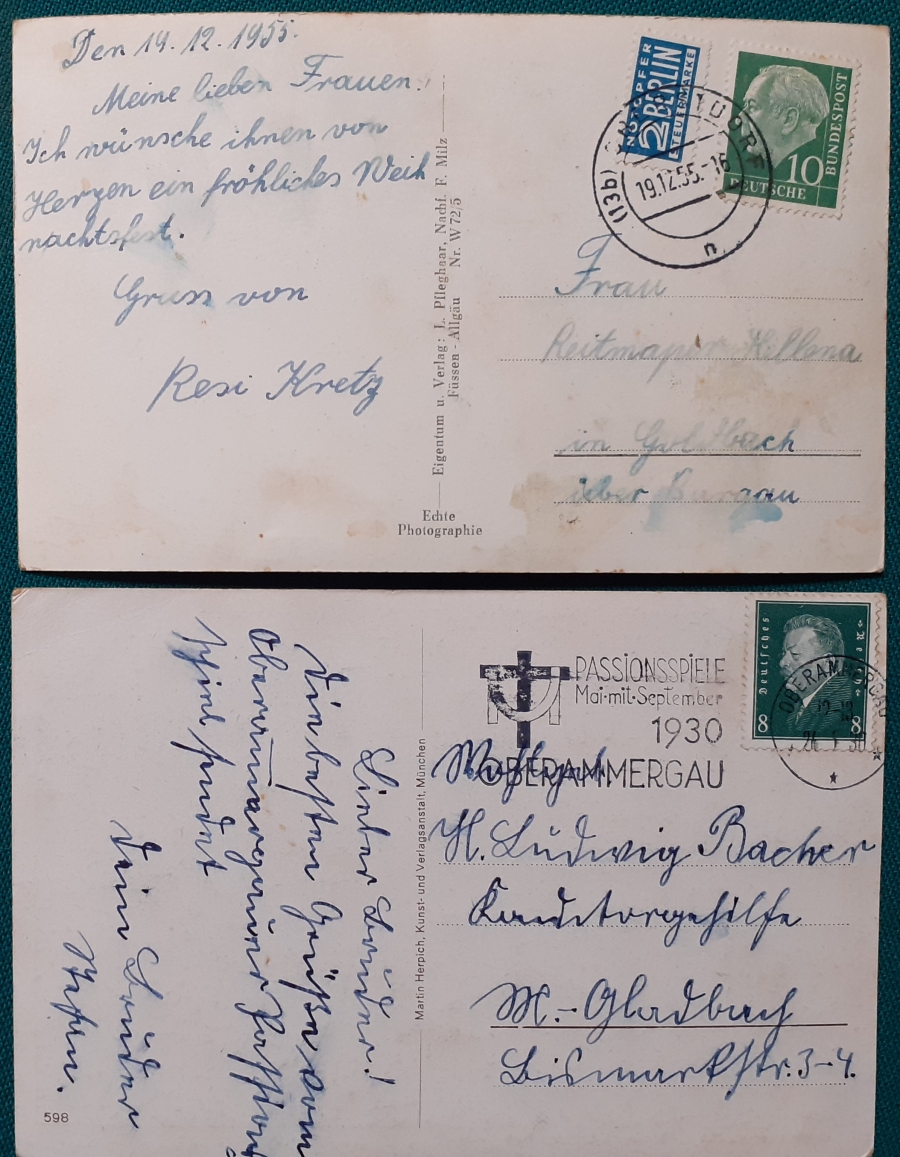 Den 19.12.1955.
Meine lieben Frauen!
Ich wünsche ihnen von
Herzen ein fröhliches Weih
nachtsfest.
Gruss von
Resi Kretz
Eigentum u. Verlag: L. Pfleghaar, Nachf. F. Milz
Füssen - Allgäu Nr. W 72/5
Echte
Photographie
NOTOPFER
2 BERLIN
STEUERMARKE
10
DEUTSCHE
BUNDESPOST
(13b)
19.12.55.-16
u
Frau
Reitmayer Hellena
in Goldbach
über Burgau
Lieber Bruder!
Die besten Grüße vom
Oberammergauer Passions
spiel sendet
Dein Bruder
598
Martin Herpich, Kunst- und Verlagsanstalt, München
PASSIONSSPIELE
Mai-mit-September
1930
OBERAMMERGAU
Deutsches
Reich
8 8
OBERAMMERGAU
H. Ludwig Bacher
Konditorgehilfe
M.-Gladbach
Bismarkstr. 3-4.